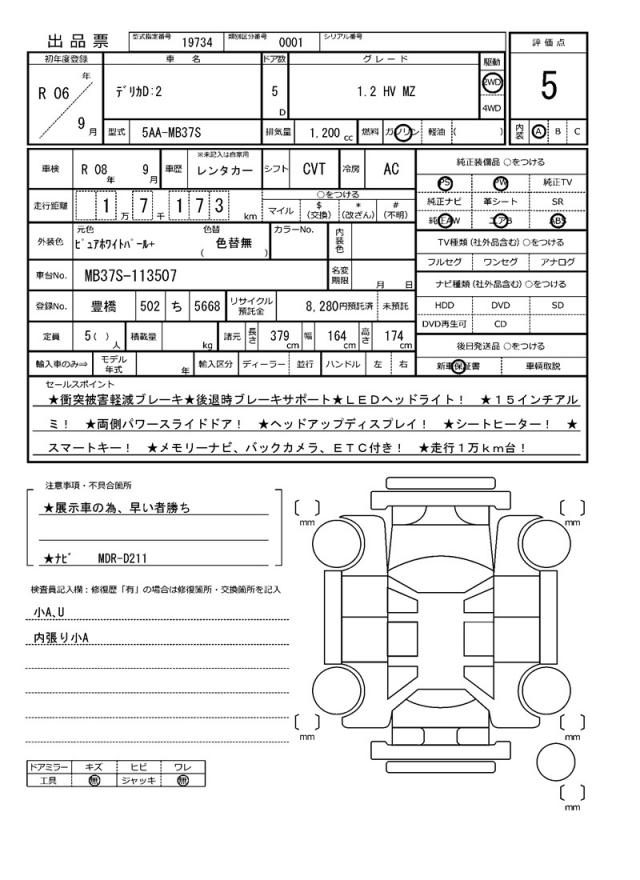 出品票 型式指定番号 19734 類別区分番号 0001 シリアル番号
評価点
5
内装 A B C
初年度登録 車名 ドア数 グレード 駆動
R 06 年 9 月 デリカD:2 5 D 1.2 HV MZ 2WD 4WD
型式 5AA-MB37S 排気量 1.200 cc 燃料 ガソリン 軽油 ( )
車検 R 08 年 9 月 車歴 ※未記入は自家用 レンタカー シフト CVT 冷房 AC
走行距離 1 万 7 千 1 7 3 km ○をつける
マイル $ (交換) * (改ざん) # (不明)
外装色 元色 ピュアホワイトパール+ 色替 ( 色替無 ) カラーNo. 内装色
車台No. MB37S-113507 名変期限 月 日
登録No. 豊橋 502 ち 5668 リサイクル預託金 8,280円預託済 未預託
定員 5( ) 人 積載量 kg 諸元 長さ 379 cm 幅 164 cm 高さ 174 cm
輸入車のみ⇒ モデル年式 年 輸入区分 ディーラー 並行 ハンドル 左 右
純正装備品 ○をつける
PS PW 純正TV
純正ナビ 革シート SR
純正AW エアB ABS
TV種類 (社外品含む) ○をつける
フルセグ ワンセグ アナログ
ナビ種類 (社外品含む) ○をつける
HDD DVD SD
DVD再生可 CD
後日発送品 ○をつける
新車保証書 車輌取説
セールスポイント
★衝突被害軽減ブレーキ★後退時ブレーキサポート★LEDヘッドライト! ★15インチアル
ミ! ★両側パワースライドドア! ★ヘッドアップディスプレイ! ★シートヒーター! ★
スマートキー! ★メモリーナビ、バックカメラ、ETC付き! ★走行1万km台!
注意事項・不具合箇所
★展示車の為、早い者勝ち
★ナビ MDR-D211
検査員記入欄:修復歴「有」の場合は修復箇所・交換箇所を記入
小A、U
内張り小A
ドアミラー キズ ヒビ ワレ
工具 無 ジャッキ 無
[ ] mm
[ ] mm
[ ] mm
[ ] mm
[ ] mm